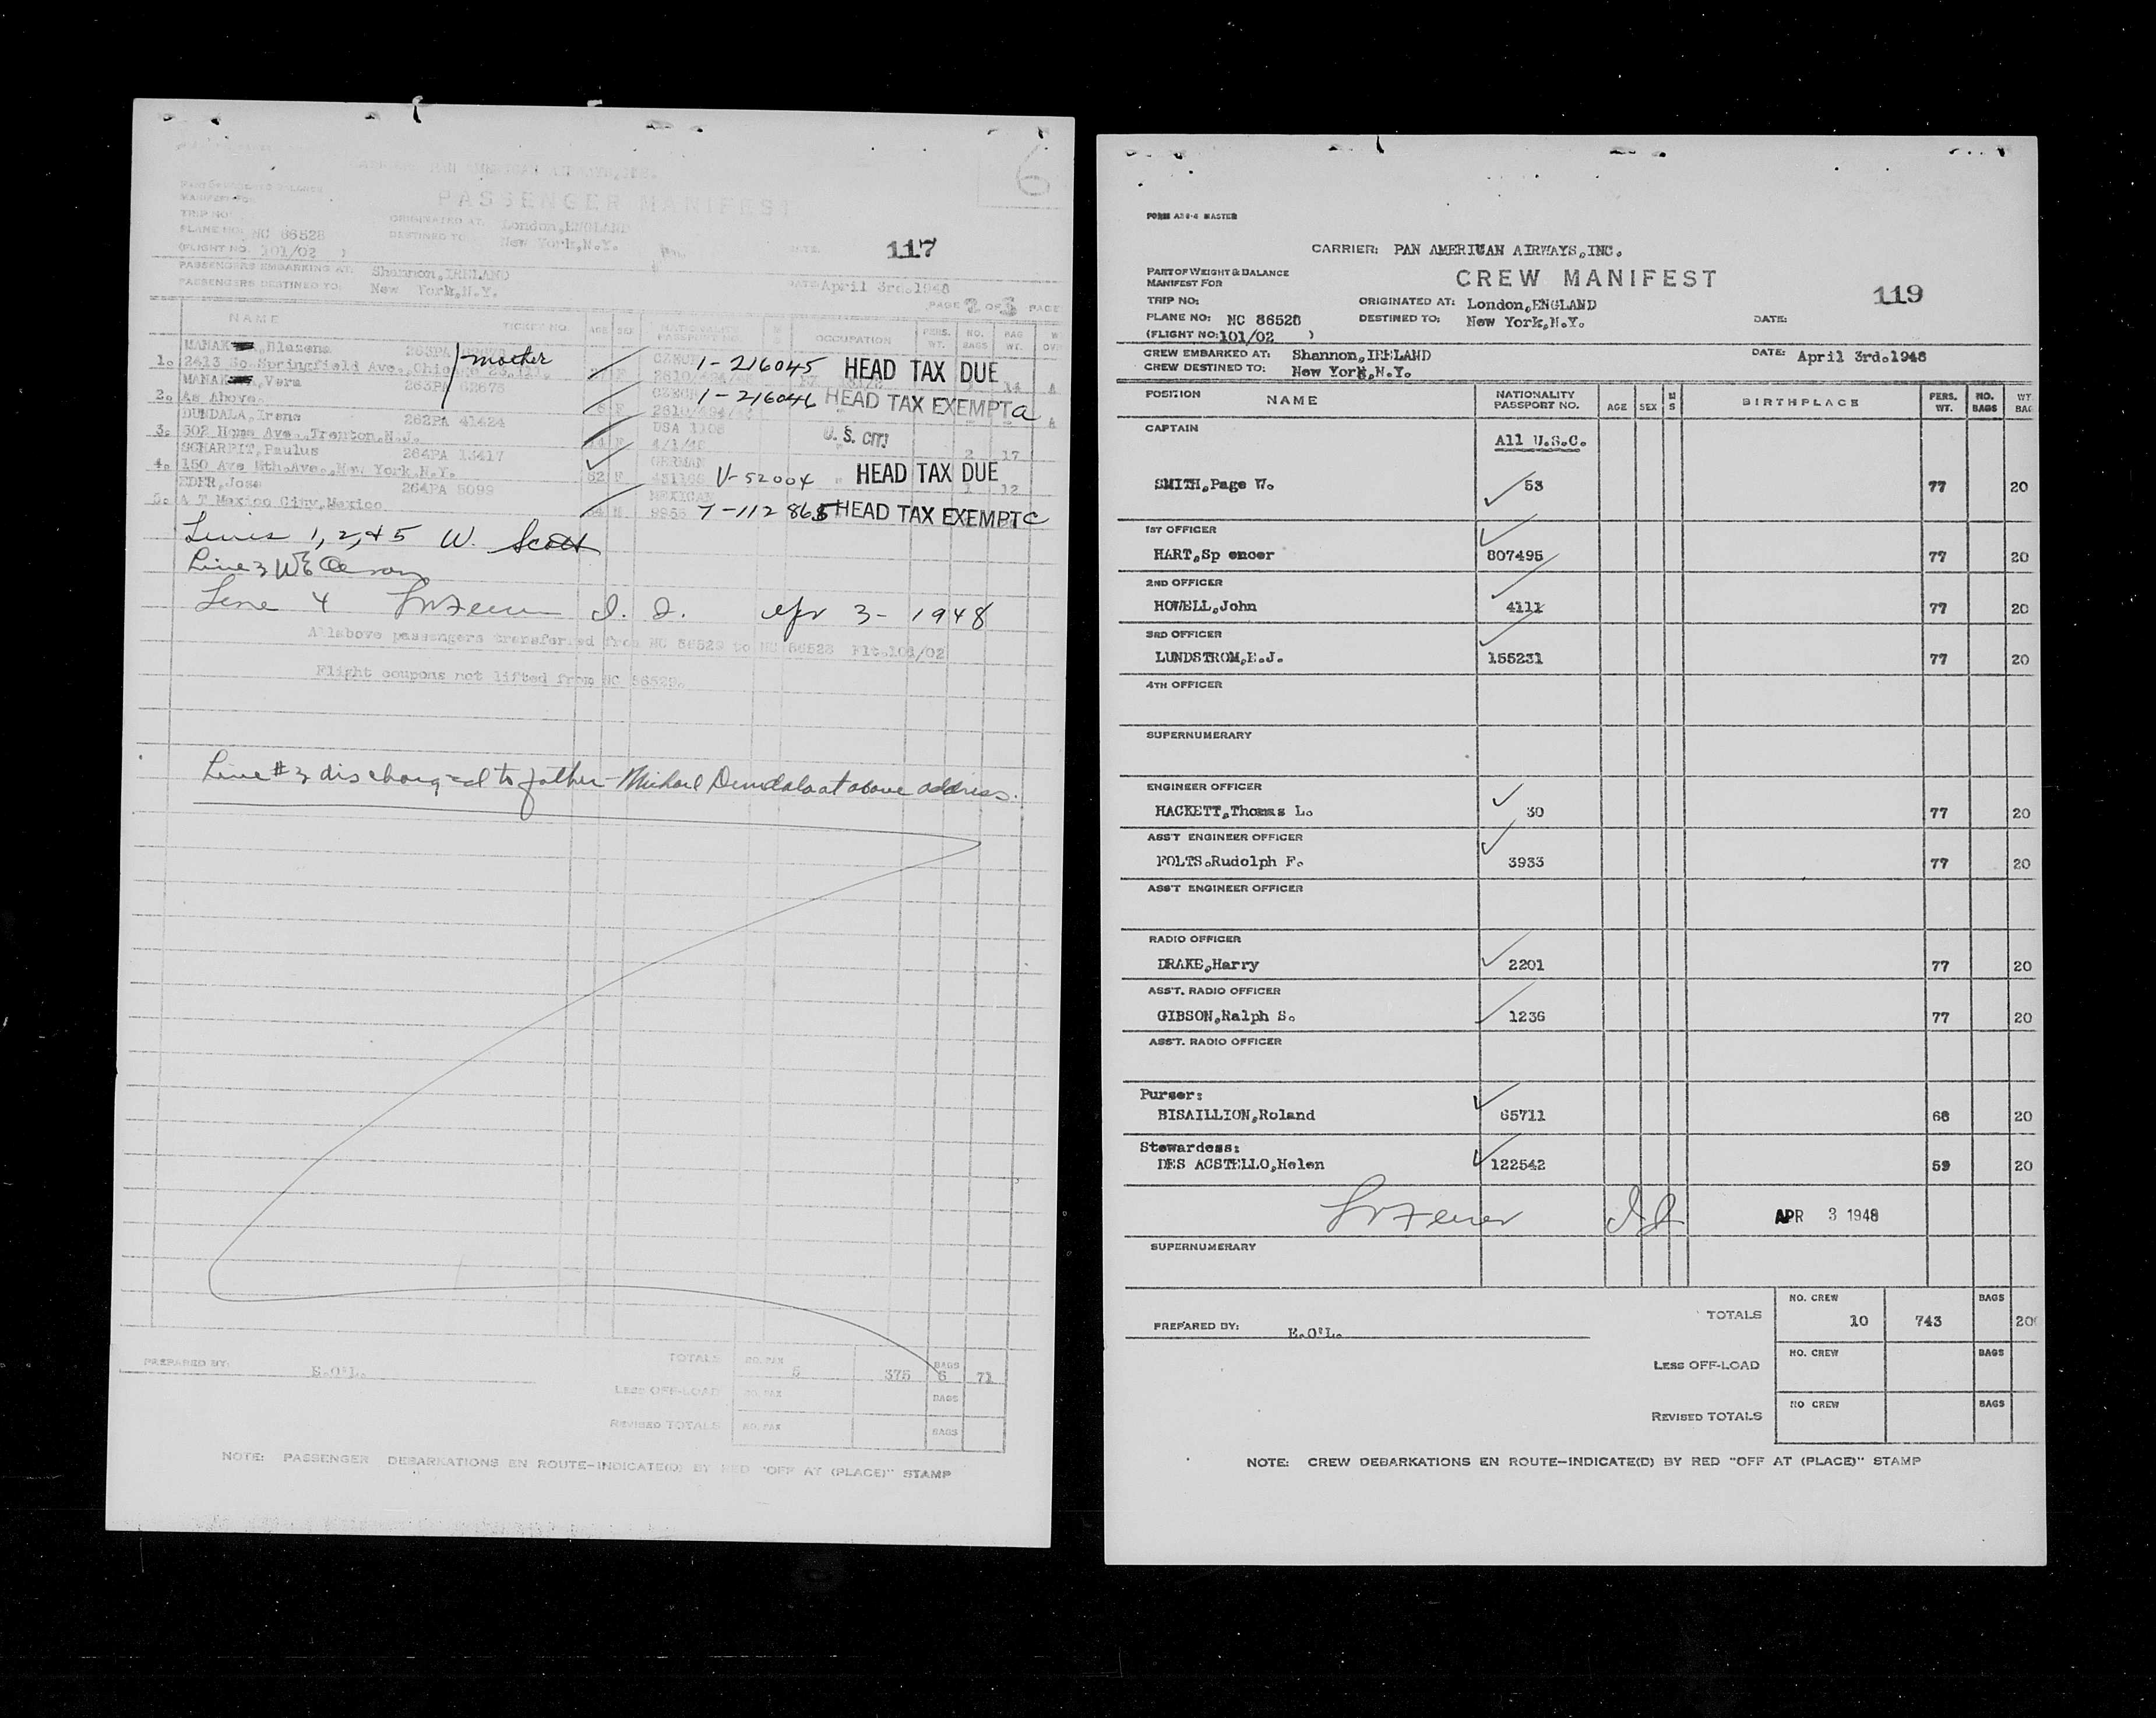 6
PAN AMERICAN AIRWAYS, INC.
PASSENGER MANIFEST
MANIFEST FOR
TRIP NO:
PLANE NO: NC 86528
(FLIGHT NO. 101/02 )
ORIGINATED AT: London, ENGLAND
DESTINED TO: New York, N.Y.
DATE:
117
PASSENGERS EMBARKING AT: Shannon, IRELAND
PASSENGERS DESTINED TO: New York, N.Y.
DATE April 3rd. 1948
PAGE OF PAGE
NAME TICKET NO. AGE SEX NATIONALITY PASSPORT NO. M S OCCUPATION PERS. WT. NO. BAGS BAG WT.
1. MANAK, Blasena mother
2413 So Springfield Ave., Chicago 23, Ill. 1-216045 HEAD TAX DUE 14 A
2. MANAK, Vera 263PA 62673
As Above. 1-216046 HEAD TAX EXEMPT a
3. DUNDALA, Irene 262PA 41424 USA 1108 U.S. CITJ
302 Home Ave., Trenton, N.J. 14 F 4/1/48 2 17
4. SCHARPIT, Paulus 264PA 13417 GERMAN
150 Ave Mth. Ave., New York, N.Y. 52 F V-52004 HEAD TAX DUE 1 12
5. EDER, Jose 264PA 5099 MEXICAN
A T Mexico City, Mexico M 7-112865 HEAD TAX EXEMPT C
Lines 1, 2, & 5 W. Scott
Line 3
Line 4 I. I. Apr 3- 1948
Allabove passengers transferred from NC 86529 to NC 86528 Flt.101/02
Flight coupons not lifted from NC 86529.
Line #3 discharged to father - Michael Dundala at above address.
PREPARED BY: E.O'L.
TOTALS NO. PAX 5 375 BAGS 6 71
LESS OFF-LOAD NO. PAX BAGS
REVISED TOTALS NO. PAX BAGS
NOTE: PASSENGER DEBARKATIONS EN ROUTE-INDICATE(D) BY RED "OFF AT (PLACE)" STAMP
FORM MASTER
CARRIER: PAN AMERICAN AIRWAYS, INC.
PART OF WEIGHT & BALANCE
MANIFEST FOR
CREW MANIFEST
119
TRIP NO:
PLANE NO: NC 86528
(FLIGHT NO: 101/02 )
ORIGINATED AT: London, ENGLAND
DESTINED TO: New York, N.Y.
DATE:
CREW EMBARKED AT: Shannon, IRELAND
CREW DESTINED TO: New York, N.Y.
DATE: April 3rd. 1948
POSITION NAME NATIONALITY PASSPORT NO. AGE SEX M S BIRTHPLACE PERS. WT. NO. BAGS WT. BAG
CAPTAIN All U.S.C.
SMITH, Page W. 53 77 20
1ST OFFICER
HART, Sp encer 807495 77 20
2ND OFFICER
HOWELL, John 4111 77 20
3RD OFFICER
LUNDSTROM, E.J. 155231 77 20
4TH OFFICER
SUPERNUMERARY
ENGINEER OFFICER
HACKETT, Thomas L. 30 77 20
ASS'T ENGINEER OFFICER
FOLTS. Rudolph F. 3933 77 20
ASS'T ENGINEER OFFICER
RADIO OFFICER
DRAKE, Harry 2201 77 20
ASS'T. RADIO OFFICER
GIBSON, Ralph S. 1236 77 20
ASS'T. RADIO OFFICER
Purser:
BISAILLION, Roland 65711 68 20
Stewardess:
DES ACSTELLO, Helen 122542 59 20
APR 3 1948
SUPERNUMERARY
PREPARED BY: E.O'L.
TOTALS NO. CREW 10 743 BAGS 200
LESS OFF-LOAD NO. CREW BAGS
REVISED TOTALS NO CREW BAGS
NOTE: CREW DEBARKATIONS EN ROUTE-INDICATE(D) BY RED "OFF AT (PLACE)" STAMP